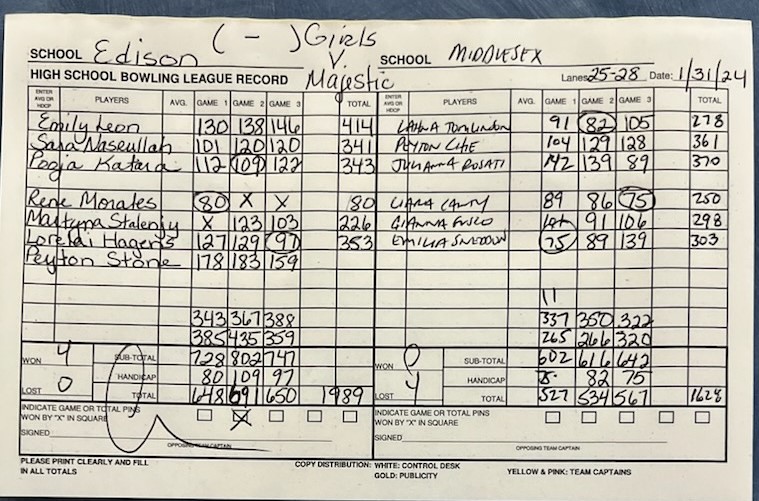 ( - ) Girls
SCHOOL Edison V. SCHOOL MIDDLESEX
HIGH SCHOOL BOWLING LEAGUE RECORD Majestic Lanes 25-28 Date: 1/31/24
ENTER AVG OR HDCP PLAYERS AVG. GAME 1 GAME 2 GAME 3 TOTAL ENTER AVG OR HDCP PLAYERS AVG. GAME 1 GAME 2 GAME 3 TOTAL
Emily Leon 130 138 146 414 91 82 105 278
Sara Naseullah 101 120 120 341 PEYTON 104 129 128 361
Pooja Kataria 112 109 122 343 JULIANNA ROSATI 142 139 89 370
Rene Morales 80 X X 80 89 86 75 250
X 123 103 226 GIANNA FUSCO 101 91 106 298
127 129 97 353 EMILIA SNEDDON 75 89 139 303
Peyton Stone 178 183 159
11
343 367 388 337 350 322
385 435 359 265 266 320
WON 4 SUB-TOTAL 728 802 747 WON 0 SUB-TOTAL 602 616 642
HANDICAP 80 109 97 HANDICAP 75 82 75
LOST 0 TOTAL 648 691 650 1989 LOST 4 TOTAL 527 534 567 1628
INDICATE GAME OR TOTAL PINS WON BY "X" IN SQUARE X INDICATE GAME OR TOTAL PINS WON BY "X" IN SQUARE
SIGNED SIGNED
OPPOSING TEAM CAPTAIN OPPOSING TEAM CAPTAIN
PLEASE PRINT CLEARLY AND FILL IN ALL TOTALS COPY DISTRIBUTION: WHITE: CONTROL DESK YELLOW & PINK: TEAM CAPTAINS
GOLD: PUBLICITY